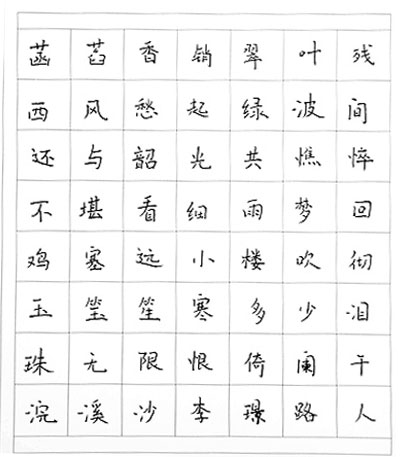 菡萏香销翠叶残
西风愁起绿波间
还与韶光共憔悴
不堪看细雨梦回
鸡塞远小楼吹彻
玉笙寒多少泪
珠无限恨倚阑干
浣溪沙李璟路人